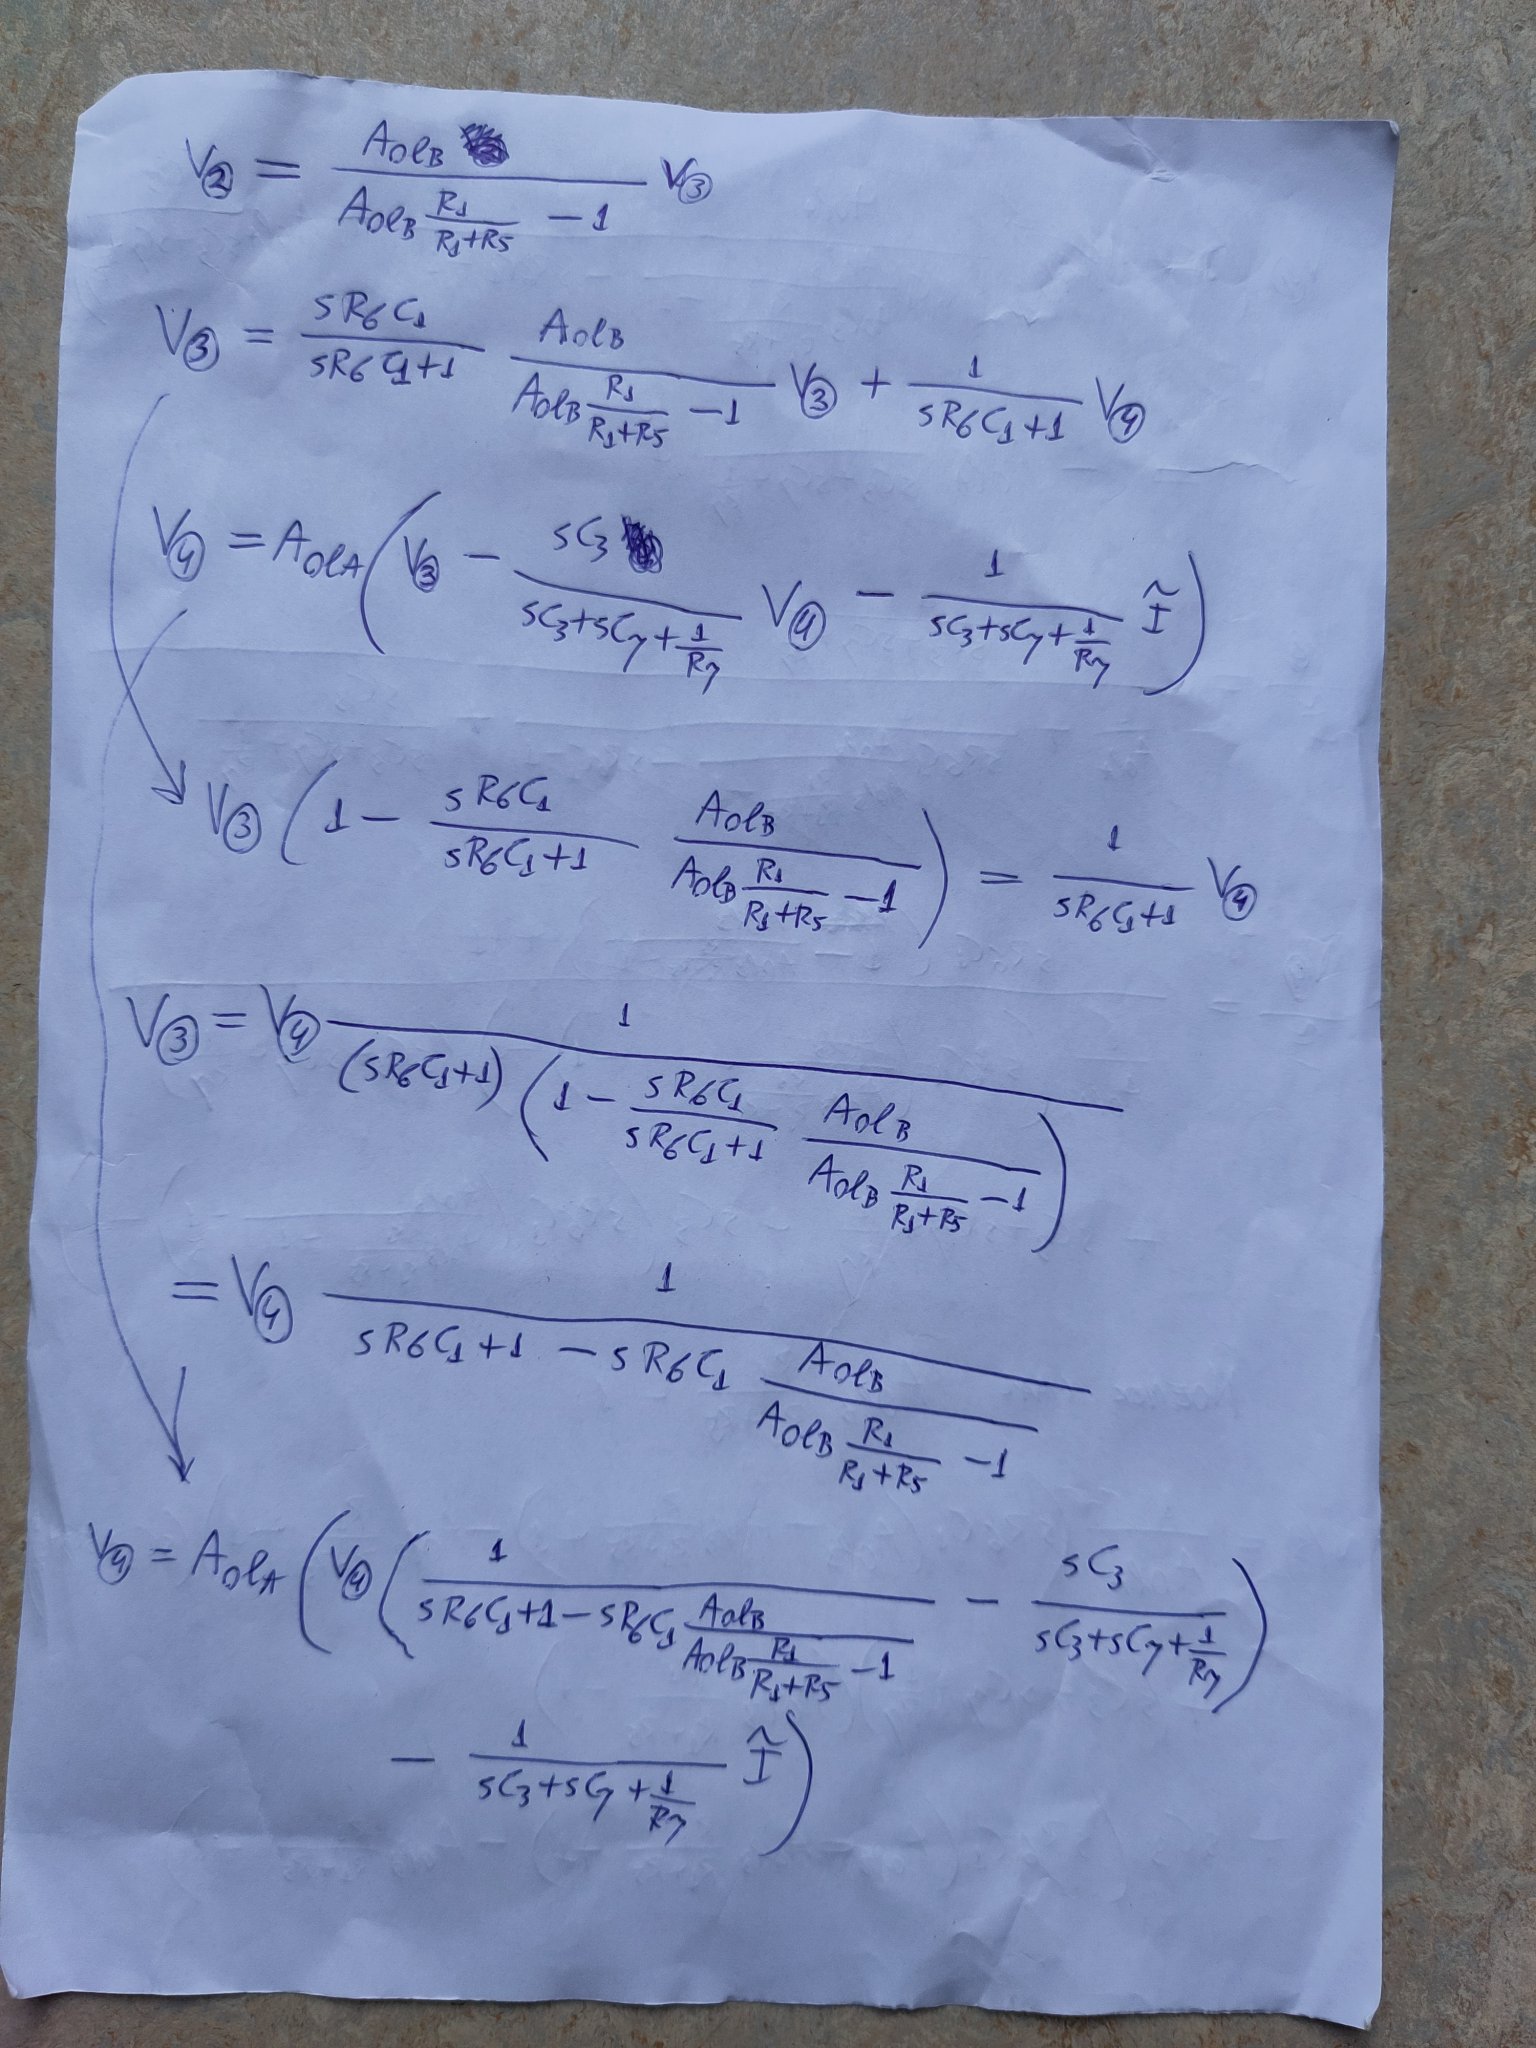 V② = \frac{A_{olB}}{A_{olB} \frac{R_1}{R_1+R_5} - 1} V③
V③ = \frac{sR_6C_1}{sR_6C_1+1} \frac{A_{olB}}{A_{olB} \frac{R_1}{R_1+R_5} - 1} V③ + \frac{1}{sR_6C_1+1} V④
V④ = A_{olA} ( V③ - \frac{sC_3}{sC_3+sC_7+\frac{1}{R_7}} V④ - \frac{1}{sC_3+sC_7+\frac{1}{R_7}} \tilde{I} )
V③ ( 1 - \frac{sR_6C_1}{sR_6C_1+1} \frac{A_{olB}}{A_{olB} \frac{R_1}{R_1+R_5} - 1} ) = \frac{1}{sR_6C_1+1} V④
V③ = V④ \frac{1}{(sR_6C_1+1) ( 1 - \frac{sR_6C_1}{sR_6C_1+1} \frac{A_{olB}}{A_{olB} \frac{R_1}{R_1+R_5} - 1} )}
= V④ \frac{1}{sR_6C_1+1 - sR_6C_1 \frac{A_{olB}}{A_{olB} \frac{R_1}{R_1+R_5} - 1}}
V④ = A_{olA} ( V④ ( \frac{1}{sR_6C_1+1-sR_6C_1 \frac{A_{olB}}{A_{olB} \frac{R_1}{R_1+R_5} - 1}} - \frac{sC_3}{sC_3+sC_7+\frac{1}{R_7}} )
- \frac{1}{sC_3+sC_7+\frac{1}{R_7}} \tilde{I} )